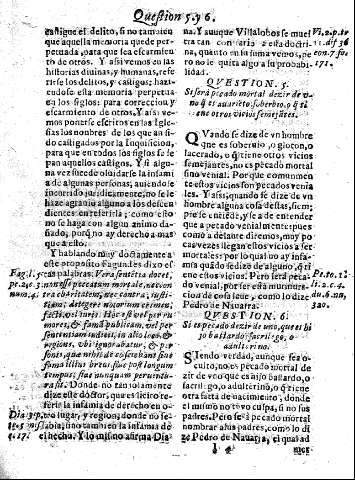 Question 5. y 6.
castigue el delito, si no tambien
que aquella memoria quede per-
petuada, para que sea escarmien-
to de otros. Y assi vemos en las
historias diuinas, y humanas, refe
rirse los delitos, y castigos; hazi-
endose esta memoria perpetua
en los siglos: para correccion y es
carmiento de otros. Y assi ve-
mos ponerse escritos en las Igle-
sias los nombres de los que an si-
do castigados por la Inquisicion,
para que en todos los siglos se se
pan aquellos castigos. Y si algu-
na vez sucede oluidarse la infamia
de algunas personas, auiendo se
cometido juridicamente; no se le
haze agrauio alguno a los descen
dientes en referirla; como esto
no se haga con algun animo da-
ñado, porq no ay derecho a mas
que a esto.
Y hablando muy doctamente a
este proposito Fagundes dizo es
Fag. l. 5.
tas palabras: Vera sententia docet,
præt. 24. 3.
non esse peccatum mortale, nec con
num. 4.
tra charitatem, nec contra iusti-
tiam, detegere uxorum crimen
facti, vel iuris. Hoc est vel per ru
mores, & famã publicam, vel per
sententiam iudicis, in alio loco, &
regione, vbi ignorabatur, & per
fonti, qua nihil de eo sciebant siue
fama illius breui siue post longum
Tempus, siue nunquam peruentu-
ra sit. Donde no tan solamente
dize este dotor, que es licito re-
ferir la infamia de derecho en o-
Dia. 3. p.
tro lugar, y region, donde no se-
sabia; sino tambien la infamia de
r. 17.
el hecho. Y lo mismo afirma Dia
na. Y aunque Villalobos se mues
Vi. 2. p. tr
tra tan contrario a esta doctri-
na, quanto en su suma vemos, pe
ro no le quita algo a su probabi-
171.
lidad.
QVESTION. 5.
Si será pecado mortal dezir de v-
no q es auariento, soberbio, o q ti
ene otros vicios semejantes.
QVando se dize de vn hombre
que es soberuio, o gloton, o
lacerado, o q tiene otros vicios
semejantes, no es pecado mortal
sino venial. Por que comunmen
te estos vicios son pecados venia
les. Y assi; quando se dize de vn
hombre alguna cosa destas, siem;
pre se entiede, y se a de entender
que a pecado venialmente: pues
como a delante diremos, muy po
cas vezes llegan estos vicios a ser
mortales: por lo qual no ay infa-
mia quãdo se dize de alguno, q ti
ene estos vicios. Pero serà peca
Pt. to. 1.
do venial, por ser esta murmura-
li. 2. c. 4.
cion de cosa leue, como lo dize
du. 6. nu,
Pedro de Nauarra.
320.
QVESTION. 6.
Si es pecado dezir de uno, que es hi
jo ballardo, sacrilego, o
adulterino.
SIendo verdad, aunque sea o-
culto, no es pecado mortal el de
zir de vno que es hijo ballardo, o
sacrilego, o adulterino, o q tiene
otra falta de nacimiento; donde
el mismo no tuvo culpa, si no sus
padres. Pero serà pecado mortal
nombrar a los padres, como lo di
ze Pedro de Nauarra, el qual ad